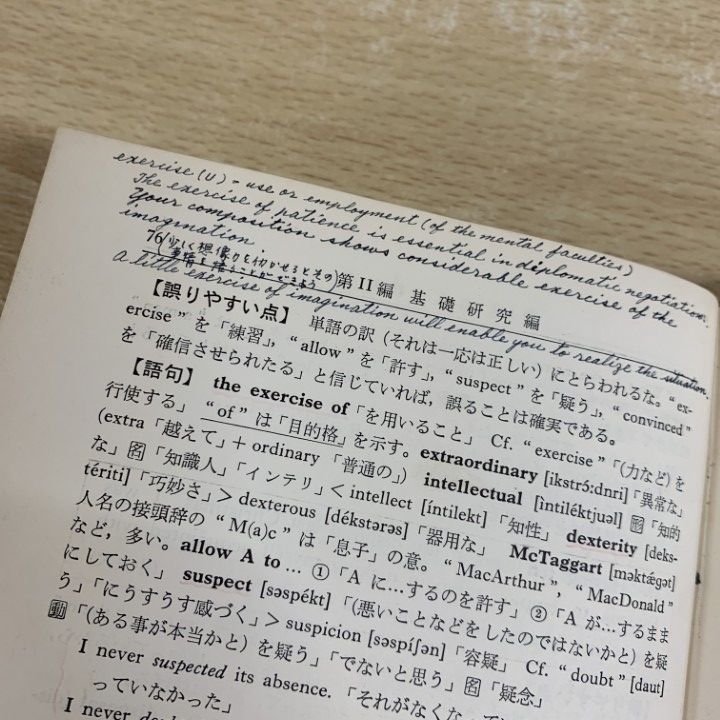 exercise (U) - use or employment (of the mental faculties)
The exercise of patience is essential in diplomatic negotiations.
Your composition shows considerable exercise of the
imagination
76 (少く想像力を働かせるとその
事情を悟ることができよう) 第II編 基礎研究編
A little exercise of imagination will enable you to realize the situation.
【誤りやすい点】 単語の訳(それは一応は正しい)にとらわれるな。“ex-
ercise”を「練習」，“allow”を「許す」，“suspect”を「疑う」，“convinced”
を「確信させられたる」と信じていれば，誤ることは確実である。
【語句】 the exercise of「を用いること」 Cf. “exercise”「(力など)を
行使する」 “of”は「目的格」を示す。 extraordinary [ikstrɔ́:dnri]「異常な」
(extra「越えて」+ ordinary「普通の」) intellectual [ìntiléktjuəl] 形「知的
な」名「知識人」「インテリ」< intellect [íntilekt]「知性」 dexterity [deks-
tériti]「巧妙さ」> dexterous [dékstərəs]「器用な」 McTaggart [məktǽgət]
人名の接頭辞の“M(a)c”は「息子」の意。“MacArthur”，“MacDonald”
など，多い。 allow A to … ①「A に…するのを許す」②「A が…するまま
にしておく」 suspect [səspékt]「(悪いことなどをしたのではないかと)を疑
う」「にうすうす感づく」> suspicion [səspíʃən]「容疑」 Cf. “doubt” [daut]
動「(ある事が本当かと)を疑う」「でないと思う」名「疑念」
I never suspected its absence. 「それがなくなっ
っていなかった」
I never